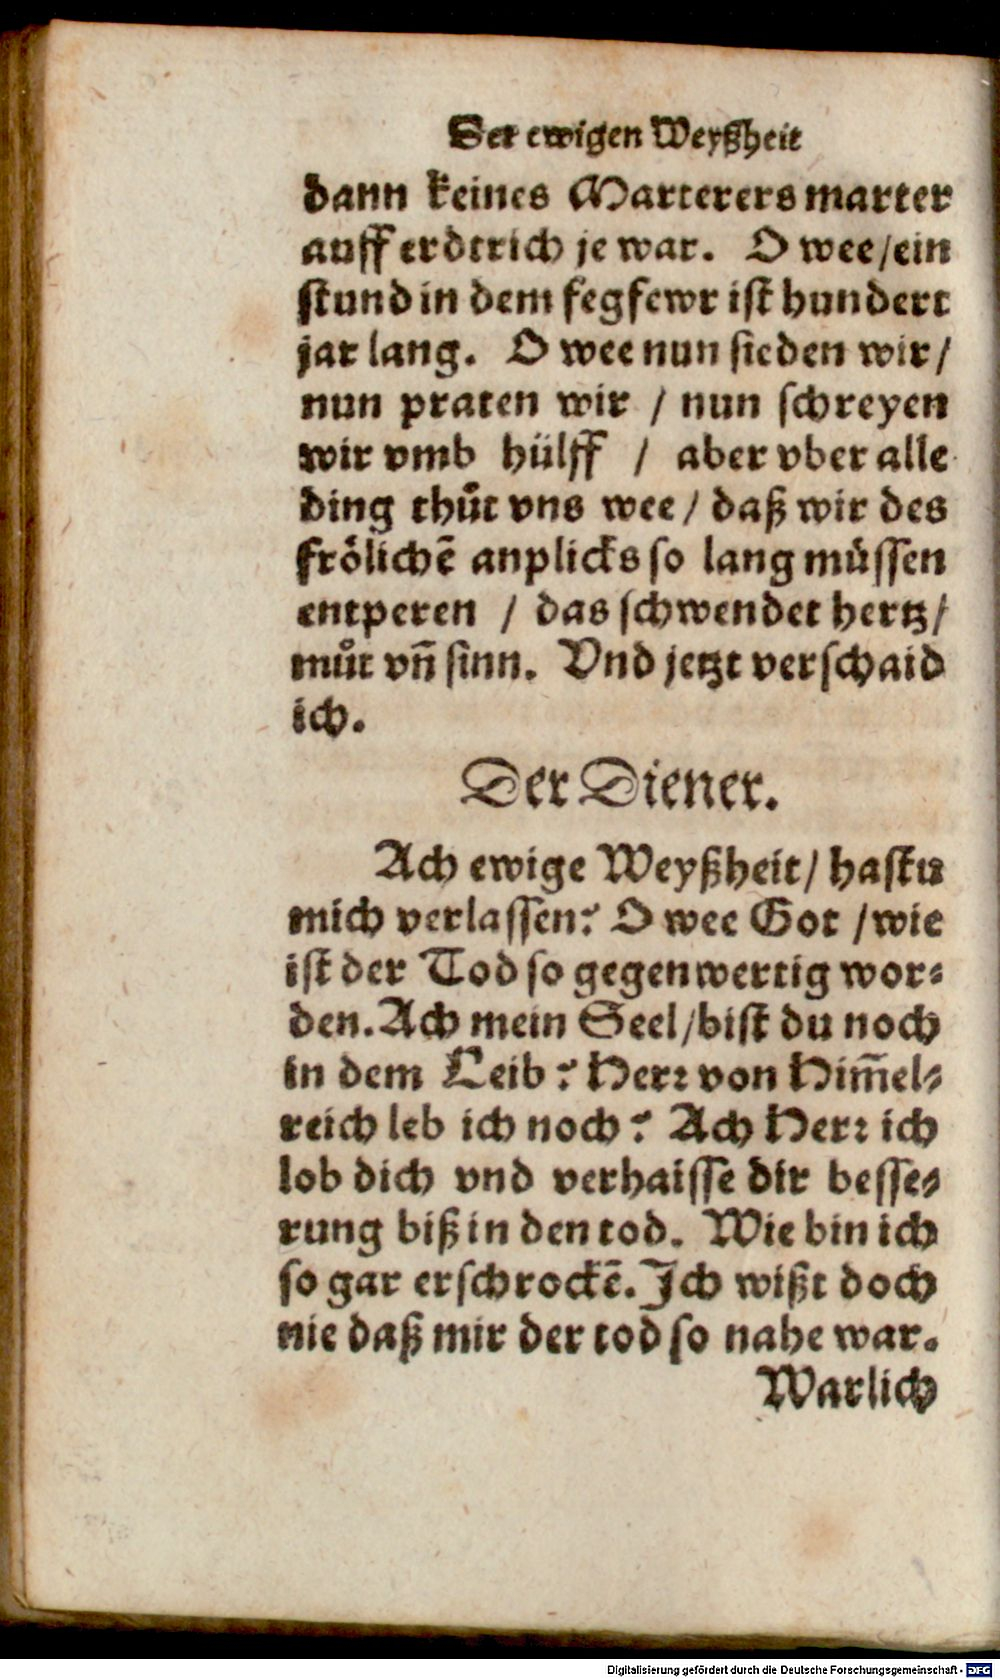 Der ewigen Weyßheit
dann keines Marterers marter
auff erdtrich je war. O wee/ein
stund in dem fegfewr ist hundert
jar lang. O wee nun sieden wir/
nun praten wir / nun schreyen
wir vmb hülff / aber vber alle
ding thůt vns wee/ daß wir des
frölichē anplicks so lang müssen
entperen / das schwendet hertz/
můt vñ sinn. Vnd jetzt verschaid
ich.
Der Diener.
Ach ewige Weyßheit/ hastu
mich verlassen? O wee Got /wie
ist der Tod so gegenwertig wor-
den. Ach mein Seel/bist du noch
in dem Leib? Herr von Him̄el-
reich leb ich noch? Ach Herr ich
lob dich vnd verhaisse dir besse-
rung biß in den tod. Wie bin ich
so gar erschrockē. Ich wißt doch
nie daß mir der tod so nahe war.
Warlich
Digitalisierung gefördert durch die Deutsche Forschungsgemeinschaft - DFG